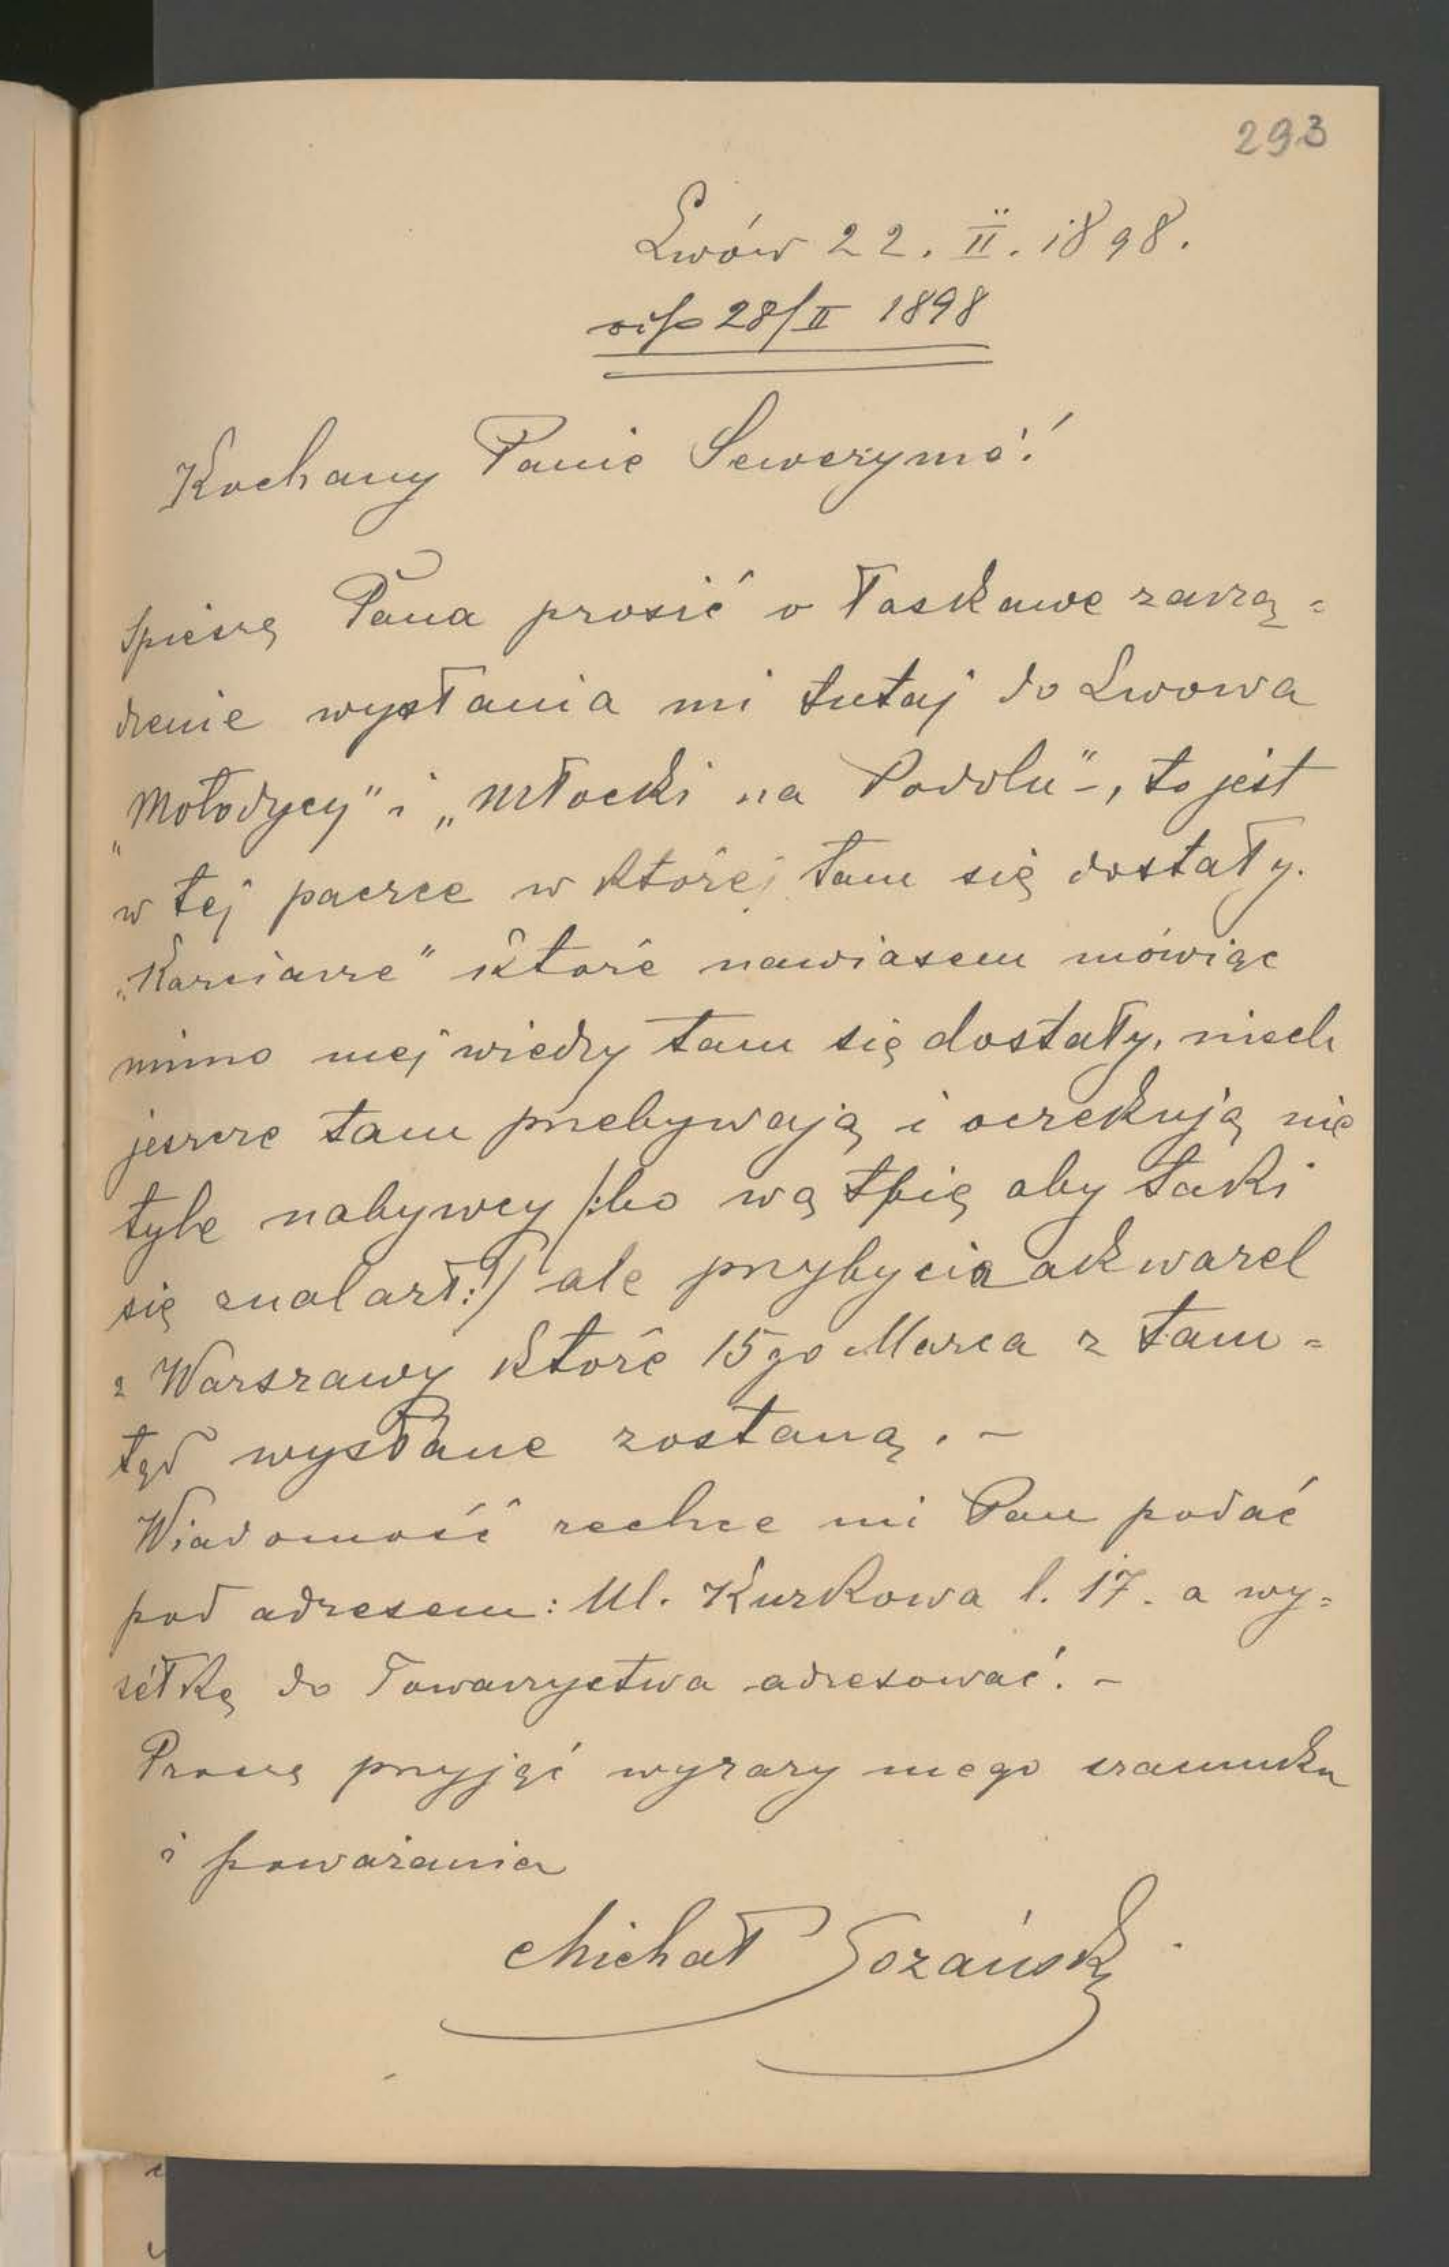 293
Lwów 22. II. 1898.
28/II 1898
Kochany Panie Sewerynie!
Spieszę Pana prosić o łaskawe zarzą=
dzenie wysłania mi tutaj do Lwowa
„Mołodycy" i „Młocki na Podolu"-, to jest
w tej paczce w której tam się dostały.
„Karciarze" które nawiasem mówiąc
mimo mej wiedzy tam się dostały, niech
jeszcze tam przebywają i oczekują nie
tyle nabywcy /:bo wątpię aby taki
się znalazł:/ ale przybycia akwarel
z Warszawy które 15go Marca z tam=
tąd wysłane zostaną. -
Wiadomość zechce mi Pan podać
pod adresem: Ul. Kurkowa l. 17. a wy=
séłkę do Towarzystwa adresować. -
Proszę przyjąć wyrazy mego szacunku
i poważania
Michał Sozański.